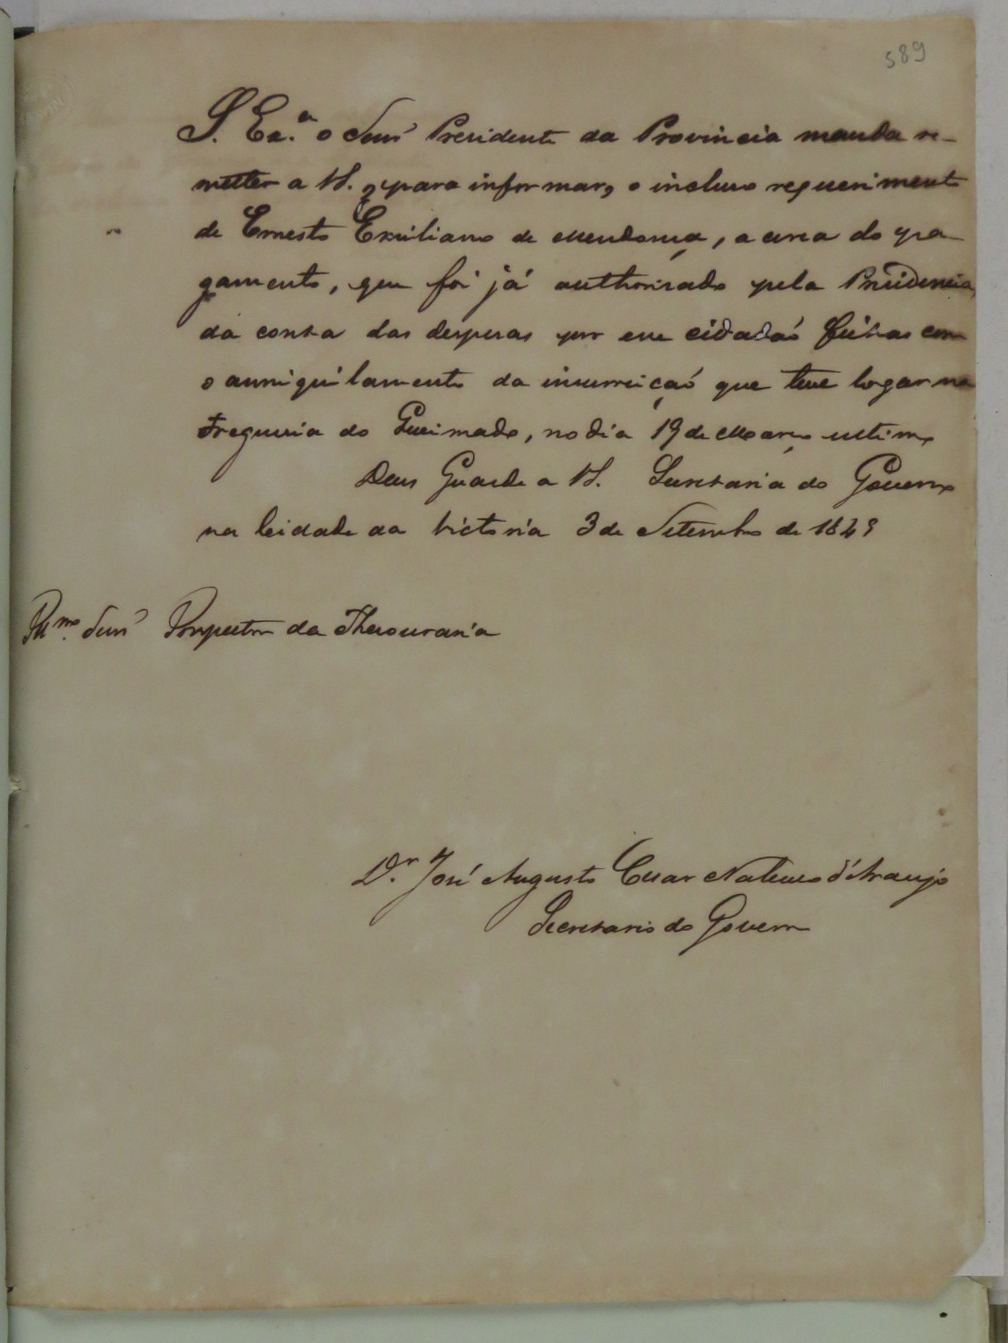 589
S. Ex.ª o Senr Presidente da Provincia manda re-
metter a V.S. para informar, o incluso requerimento
de Ernesto Emiliano de Mendonça, a cerca do pa-
gamento, que foi já authorisado pela Presidencia,
da conta das despesas por esse cidadaõ feitas com
o anniquilamento da insurreiçaõ que teve logar na
Freguesia do Queimado, no dia 19 de Março ultimo
Deus Guarde a V.S. Secretaria do Governo
na Cidade da Victoria 3 de Setembro de 1849
Senr Inspector da Thesouraria
D.r José Augusto Cesar Nabuco d'Araujo
Secretario do Governo